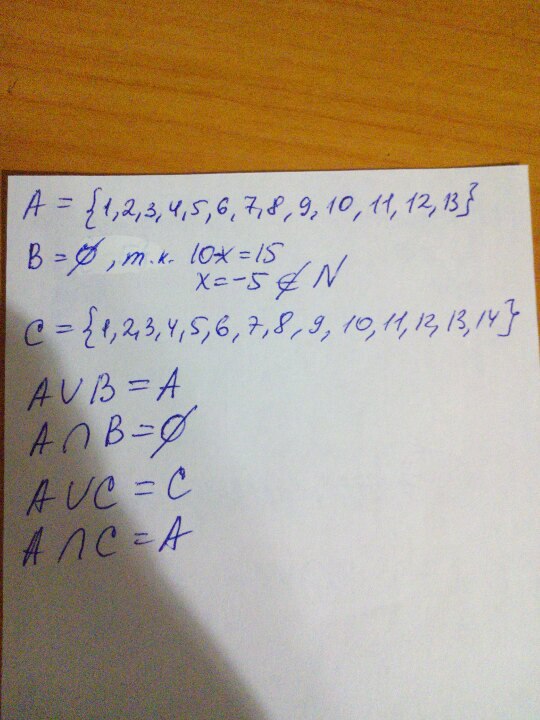 A = {1,2,3,4,5,6,7,8,9,10,11,12,13}
B = ∅, т.к. 10-x=15
x=-5 ∉ N
C = {1,2,3,4,5,6,7,8,9,10,11,12,13,14}
A∪B = A
A∩B = ∅
A∪C = C
A∩C = A